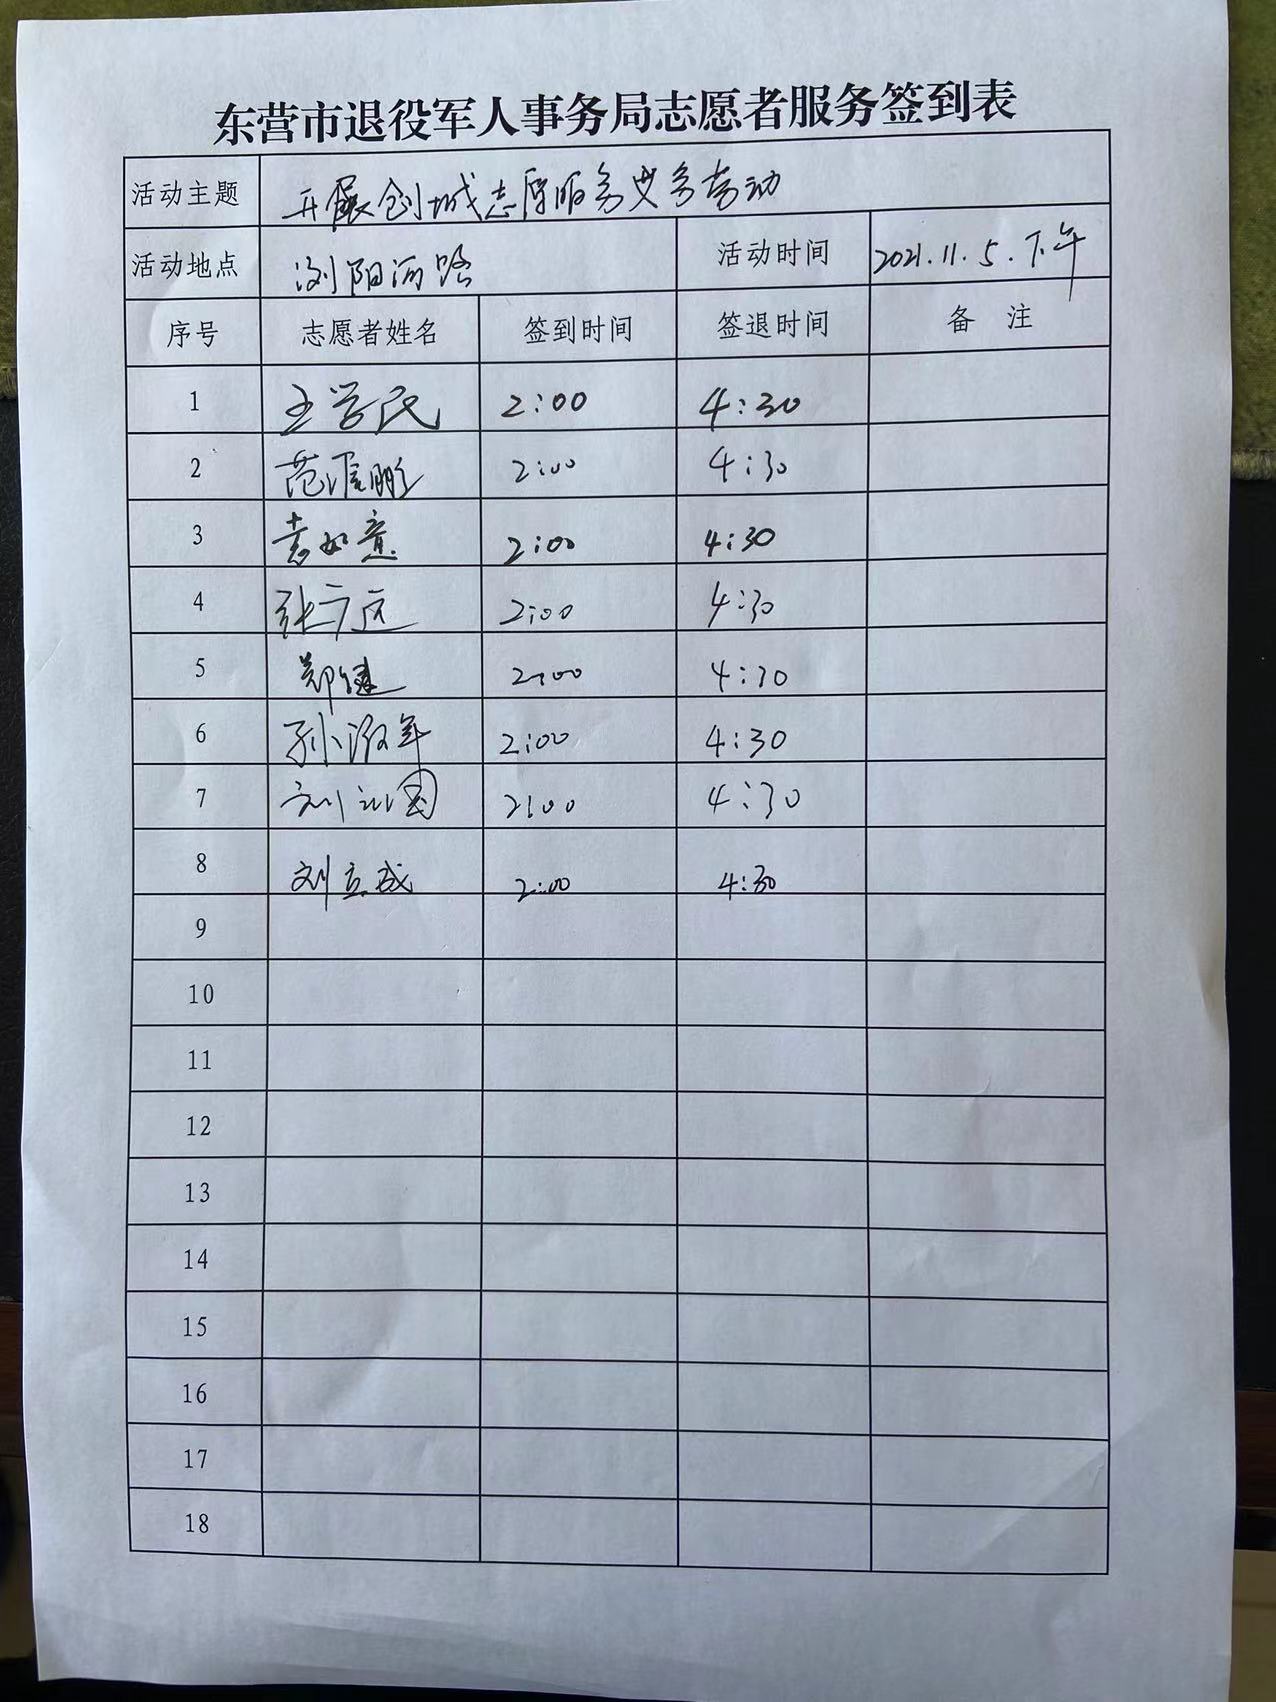 东营市退役军人事务局志愿者服务签到表
活动主题 开展创城志愿服务义务劳动
活动地点 浏阳河路 活动时间 2021.11.5.下午
序号 志愿者姓名 签到时间 签退时间 备 注
1 王学民 2:00 4:30
2 范滨鹏 2:00 4:30
3 袁如意 2:00 4:30
4 张广远 2:00 4:30
5 郑健 2:00 4:30
6 孙 年 2:00 4:30
7 刘 国 2:00 4:30
8 刘立成 2:00 4:30
9
10
11
12
13
14
15
16
17
18